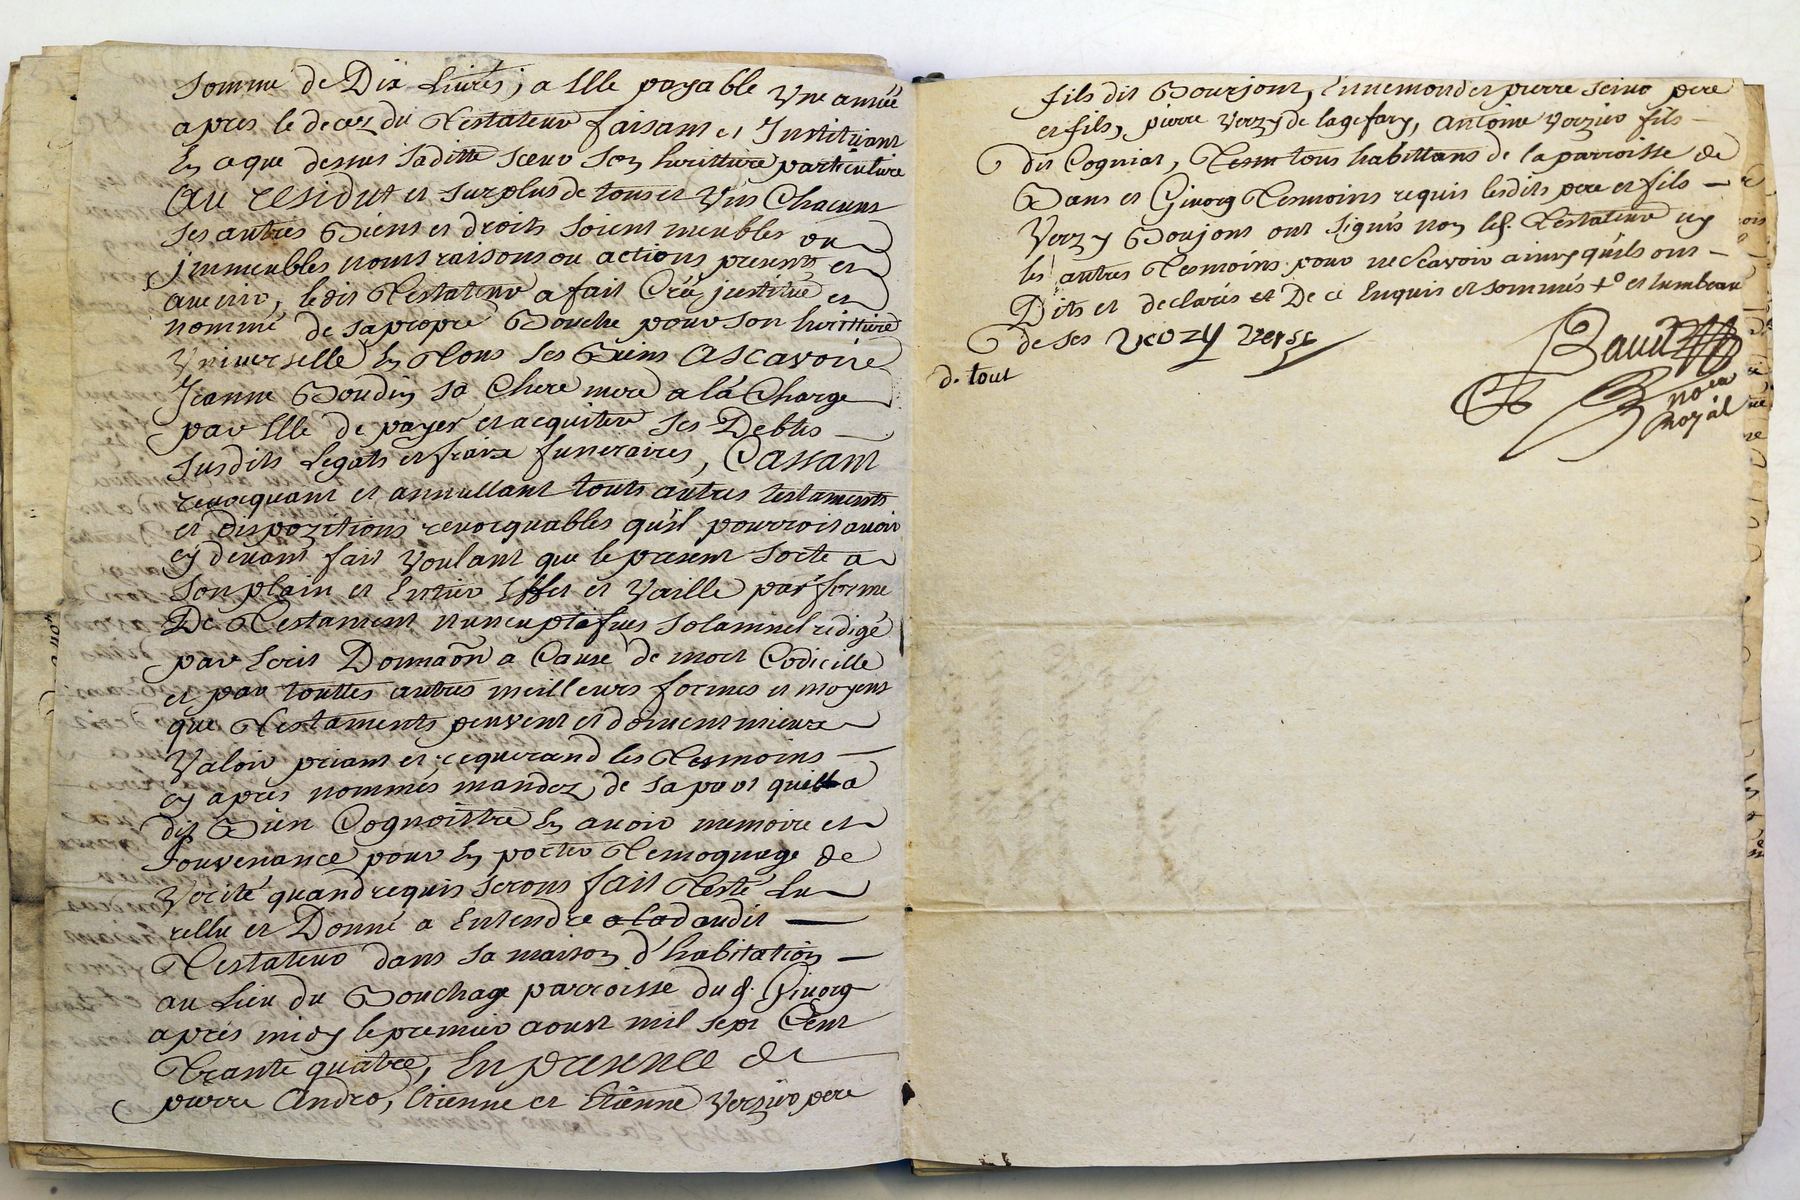 somme de Dix Livres, a Elle payable Vne année
apres le decez du Testateur faisant et Instituant
En ce que dessus saditte soeur son heritiere particuliere
Au residut et surplus de tous et Vns Chacuns
ses autres Biens et droits soient meubles ou
jmmeubles noms raisons ou actions presents et
avenir, ledit Testateur a fait Créé justitué et
nommé de sa propre Bouche pour son heritiere
Vniverselle En Tous ses Biens Ascavoire
Jeanne Boudin sa Chere mere a la Charge
par Elle de payer et acquiter ses Debtes
susdits Legats et fraix funeraires, Cassant
revocquant et annullant touts autres testaments
et dispozitions revocquables qu'il pourroit avoir
cy devant fait Voulant que le present sorte a
son plain et Entier Effet et Vaille par forme
De Testament nuncupatif solamnel redigé
par Ecrit Donnaõn a Cause de mort Codicille
et par touttes autres meilleurs formes et moyens
que Testaments peuvent et doivent mieux
Valoir priant et requerand les Tesmoins
cy apres nommés mandez de sa part quil a
dit Bien Cognoistre En avoir memoire et
souvenance pour En porter Temognage de
Verité quand requis seront fait Testé Lu
rellu et Donné a Entendre a la daudit
Testateur dans sa maison d'habitation
au Lieu du Bouchage parroisse dud. Givorg
aprés midy le premier aoust mil sept Cent
Trante quatre, En presence de
pierre Andro, Etienne et Etienne Verzier pere
fils dit Bourjont, Ennemond et pierre pere
et fils, pierre Verzy de antoine Verzier fils
dit Cogniat, Tesm tous habittans de la parroisse de
Bans et Givorg Tesmoins requis lesdits pere et fils
Verzy Boujont ont signés non led. Testateur ny
les autres Tesmoins pour ne scavoir ainsy quils ont
Dits et declarés et De ce Enquis et sommés
de ses verzy verse
d. tout
no.re
royal